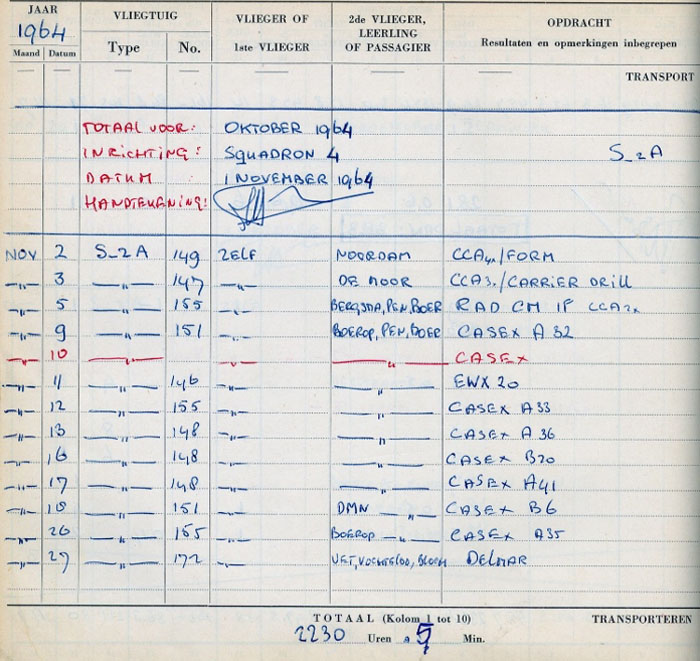 JAAR VLIEGTUIG VLIEGER OF 2de VLIEGER, OPDRACHT
1964 1ste VLIEGER LEERLING Resultaten en opmerkingen inbegrepen
Maand Datum Type No. OF PASSAGIER
TRANSPORT
TOTAAL VOOR: OKTOBER 1964
INRICHTING: SQUADRON 4 S_2A
DATUM 1 NOVEMBER 1964
HANDTEKENING:
NOV 2 S_2A 149 ZELF NOORDAM CCA4x/FORM
—„— 3 —„— 147 —„— DE MOOR CCA3x/CARRIER DRILL
—„— 5 —„— 155 —„— BERGSMA, PEN, BOER RAD CM IF CCA2x
—„— 9 —„— 151 —„— BOEROP, PEN, BOER CASEX A 32
—„— 10 —„— —„— —„— CASEX
—„— 11 —„— 146 —„— —„— EWX 20
—„— 12 —„— 155 —„— —„— CASEX A33
—„— 13 —„— 148 —„— —„— CASEX A 36
—„— 16 —„— 148 —„— —„— CASEX B20
—„— 17 —„— 148 —„— —„— CASEX A41
—„— 18 —„— 151 —„— DMN —„— CASEX B6
—„— 26 —„— 155 —„— BOEROP —„— CASEX A35
—„— 27 —„— 172 —„— DELMAR
TOTAAL (Kolom 1 tot 10) TRANSPORTEREN
2230 Uren 5 Min.